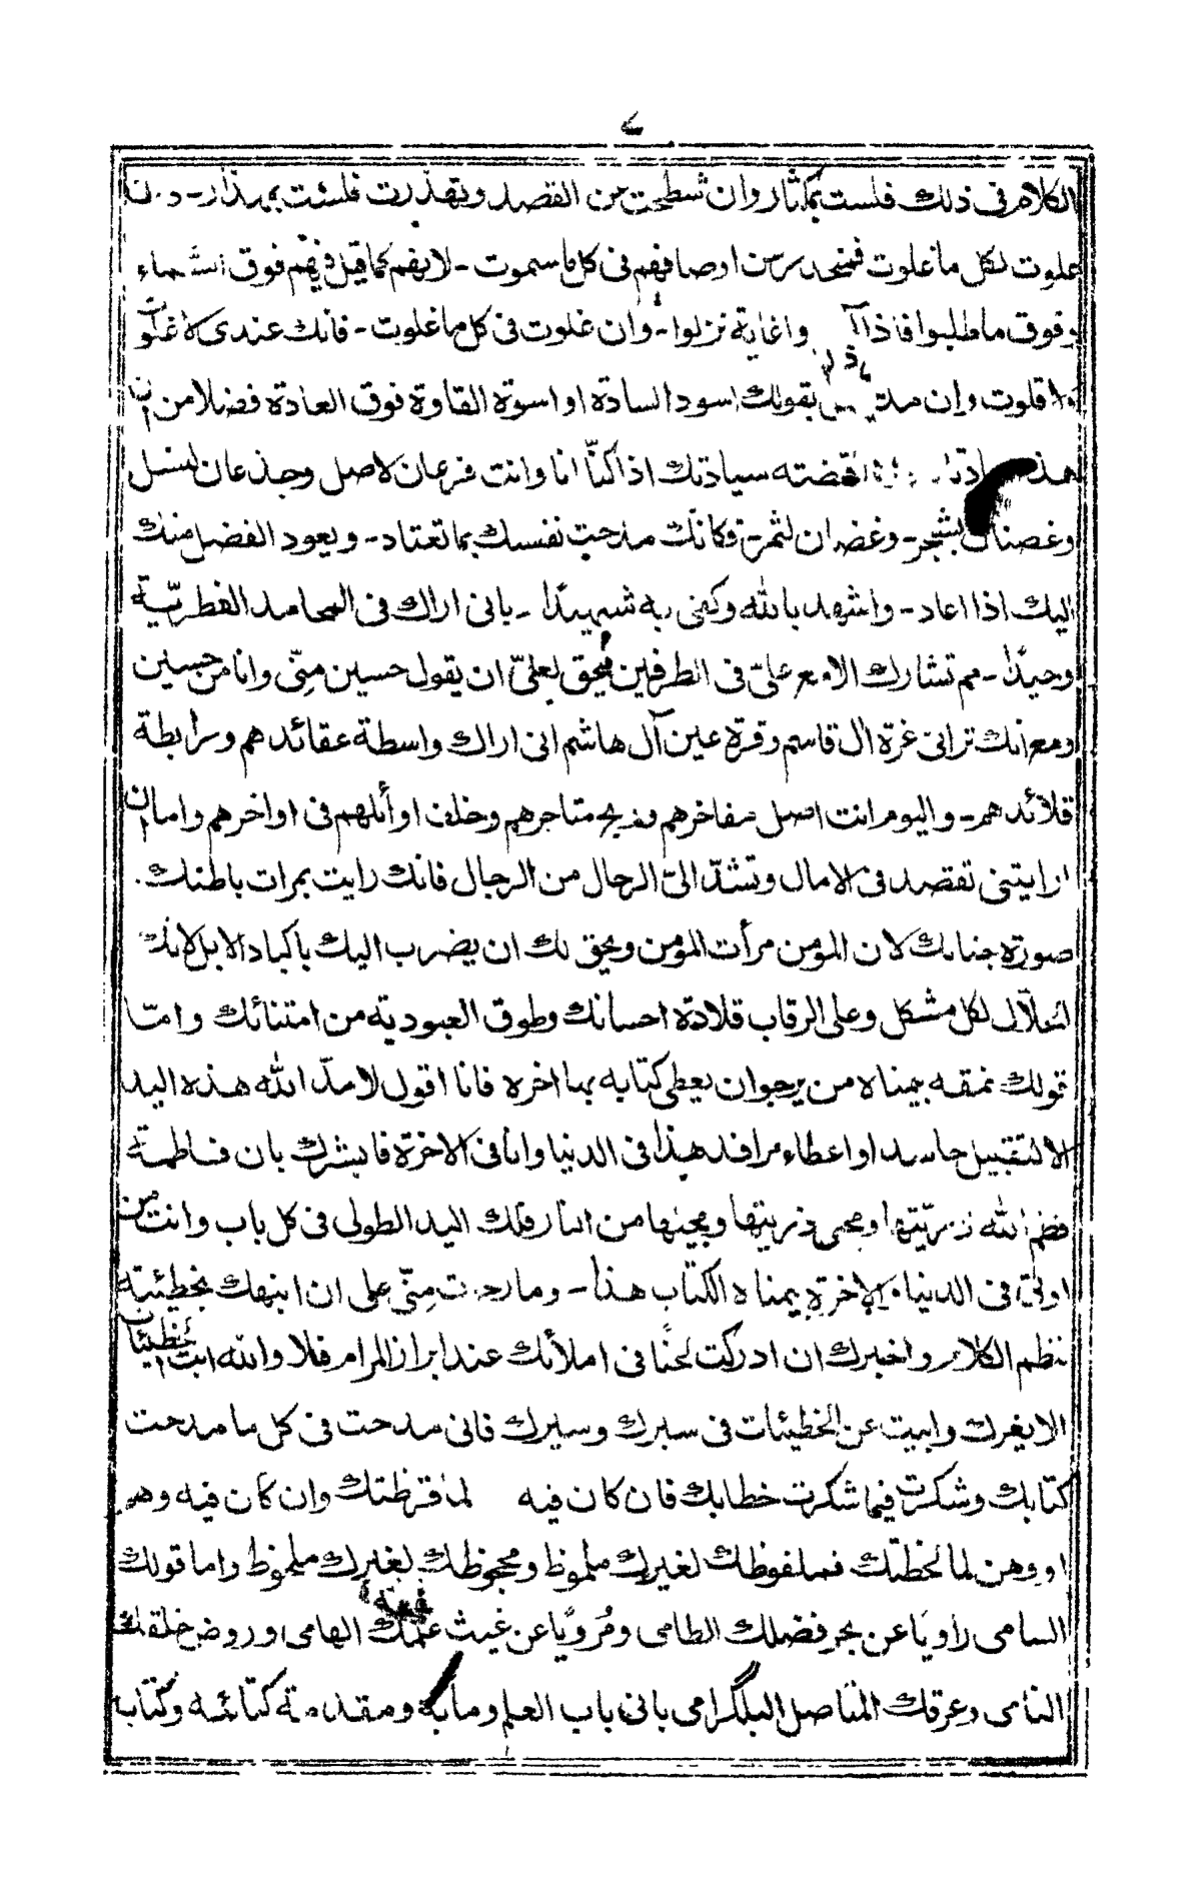 الكلام فى ذلك فلست بمكثار وان شطحت من القصد وتهذرت فلست بمهذار - و
علوت لكل ما غلوت فى كل ما سموت - لانهم كما قيل فيهم فوق السماء
وفوق ما طلبوا فاذا غاية نزلوا - وان غلوت فى كل ما غلوت - فانك عندى لا غلوت
ولا قلوت وان بقولك اسود السادة او اسوة القاوة فوق العادة فضلا من ان
سيادتك اذا كنّا انا وانت فرعان لاصل وجذعان لنسل
وغصنان بشجر - وغضان لثمرة وكانّك مدحت نفسك بما تعتاد - ويعود الفضل منك
اليك اذا اعاد - واشهد بالله وكفى به شهيدًا - بانى اراك فى المحامد الفطريّة
وحيدًا - مم تشارك الامع علىّ فى الطرفين فيحق لعلىّ ان يقول حسين منّى وانا من حسين
ومع انك ترانى غرة ال قاسم وقرة عين آل هاشم انى اراك واسطة عقائدهم ورابطة
قلائدهم - واليوم انت اصل مفاخرهم وربح متاجرهم وخلف اوائلهم فى اواخرهم واما ان
ارايتنى تقصد فى الامال وتشدّ الىّ الرحال من الرجال فانك رايت بمرات باطنك
صورة جنابك لان المومن مرأت المومن ويحق لك ان يضرب اليك باكباد الابل لانك
لحلّال لكل مشكل وعلى الرقاب قلادة احسانك وطوق العبودية من امتنانك وامّا
قولك نمقه بيمناه من يرجو ان يعطى كتابه بها اخره فانا اقول لا مدّ الله هذه اليد
الا لتقبيل او اعطاء مرافد هذا فى الدنيا وانا فى الاخرة فابشرك بان فاطمة
فطم الله ذريّتها ومحبى ذريتها ومحبيها من النار فلك اليد الطولى فى كل باب وانت من
اوتى فى الدنيا والاخرة بيمناه الكتاب هذا - وما رجوت منّى على ان انبهك بخطيئة
نظم الكلام واخبرك ان ادركت لحنًا فى املائك عند ابراز المرام فلا والله ابت الخطيئات ان
الا بغيرك وابيت عن الخطيئات فى سبرك وسيرك فانى مدحت فى كل ما مدحت
كتابك وشكرت فيما شكرت خطابك فان كان فيه لما قرظتك وان كان فيه وهم
او وهن لما لحظتك فملفوظك لغيرك ملحوظ ومحفوظك لغيرك ملحوظ واما قولك
السامى راويًا عن بحر فضلك الطامى ومُرويًا عن غيث علمك الهامى او روض خلقك
النامى وعرقك الفاضل البلگرامى بانى باب العلم ومآبه ومقدمة كتائبه وكتابه